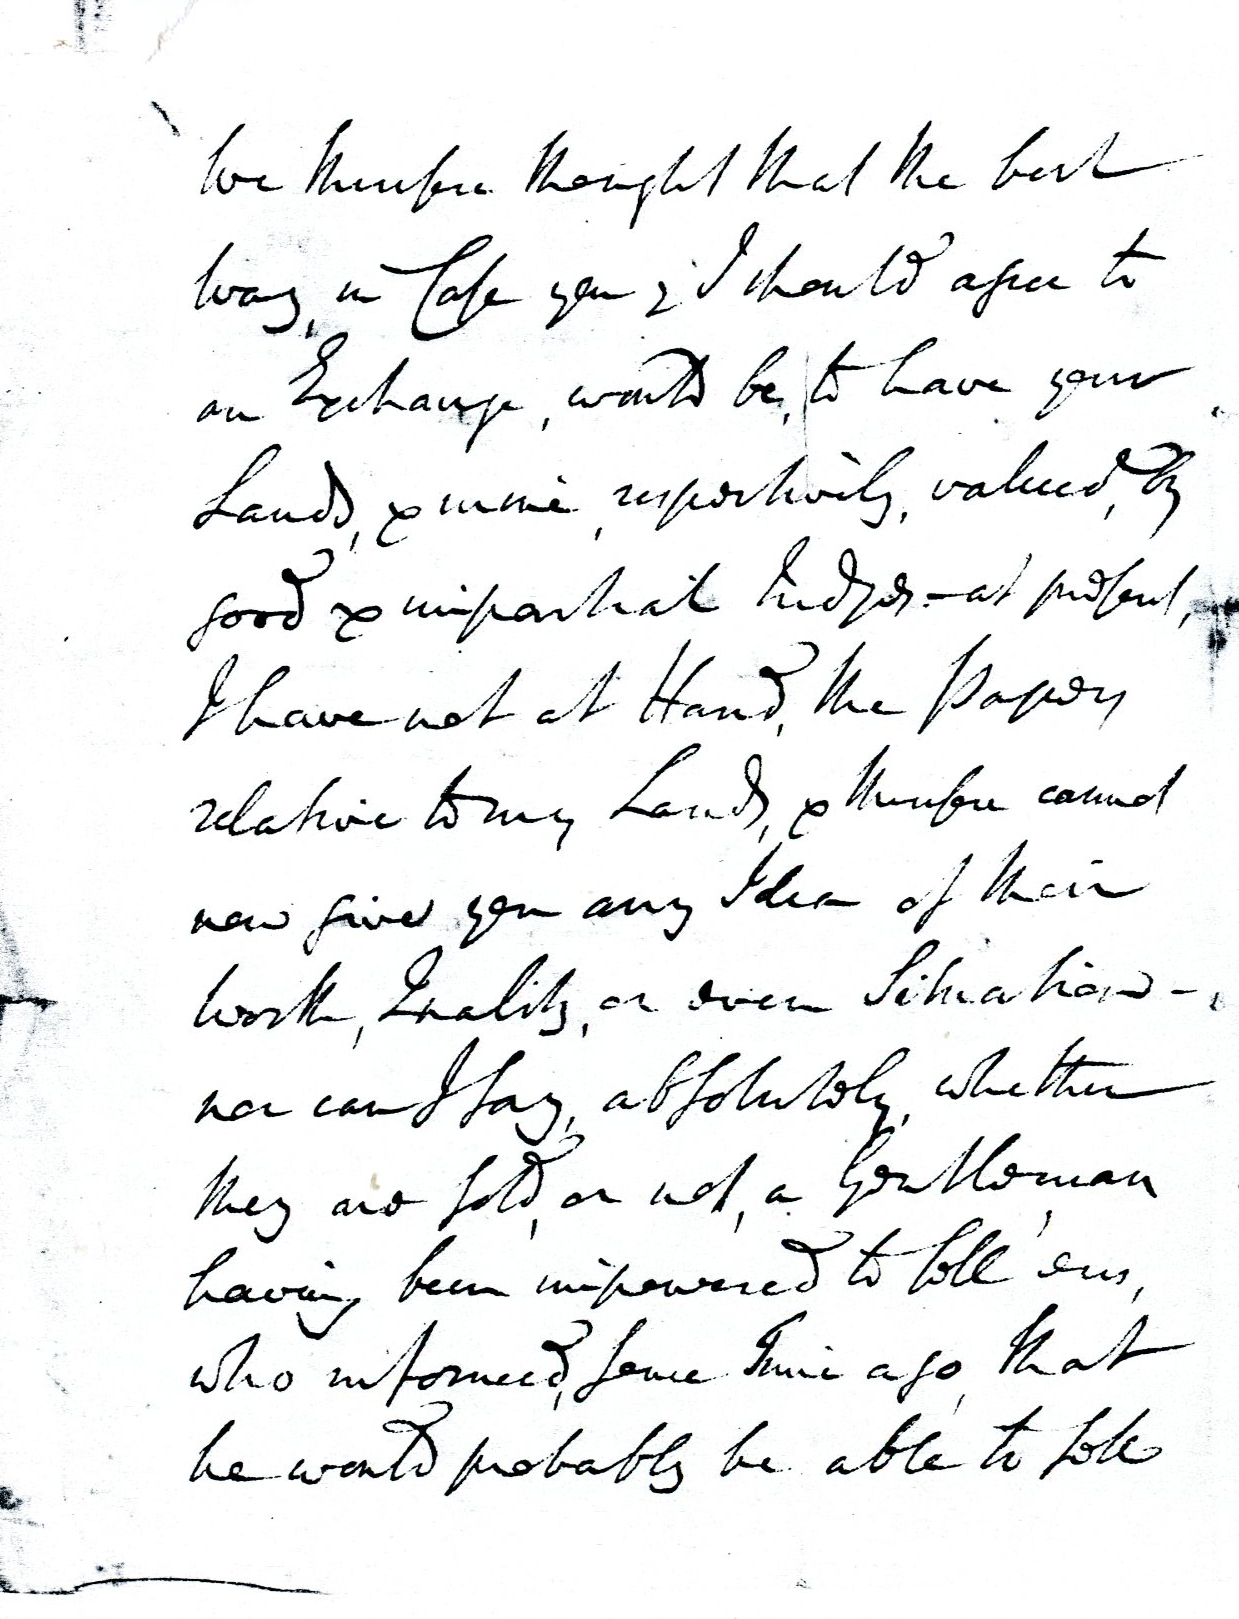 We therefore thought that the best
way, in Case you & I should agree to
an Exchange, would be, to have your
Lands, & mine, respectively, valued, by
good & impartial Judges – at present,
I have not at Hand, the Papers
relative to my Lands, & therefore cannot
now give you any Idea of their
worth, Quality, or even Situation –
nor can I say, absolutely, whether
they are sold, or not, a Gentleman,
having been impowered to sell 'em,
who informed, some Time ago, that
he would probably be able to sell